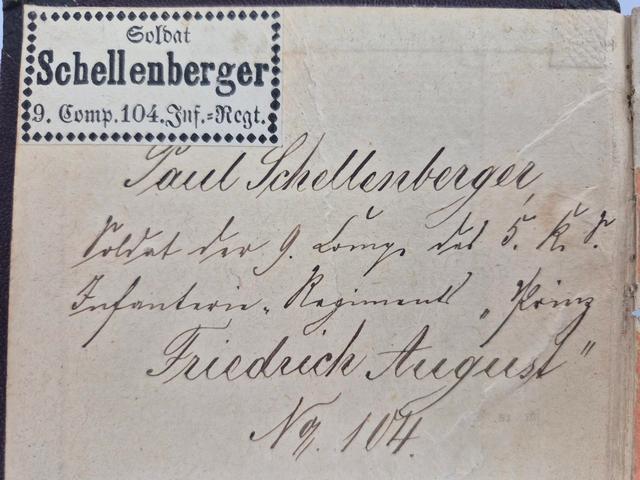 Soldat
Schellenberger
9. Comp. 104. Inf.=Regt.
Paul Schellenberger,
Soldat der 9. Comp. des 5. K. S.
Infanterie-Regiments „Prinz
Friedrich August"
No. 104.